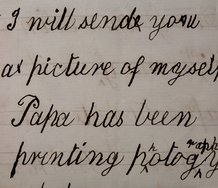 I will send you
a picture of mysel
Papa has been
printing photography